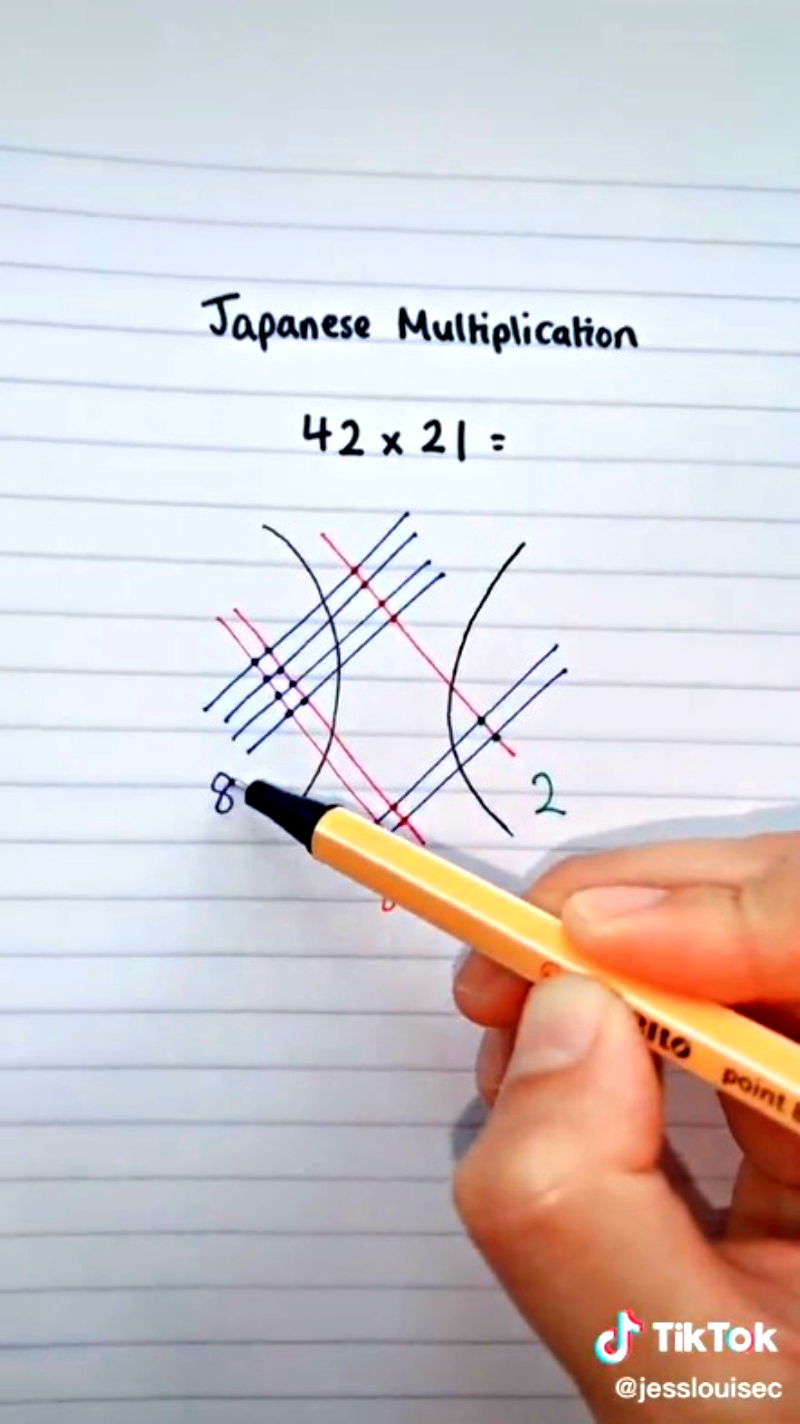 Japanese Multiplication
42 x 21 =
8
2
point
TikTok
@jesslouisec